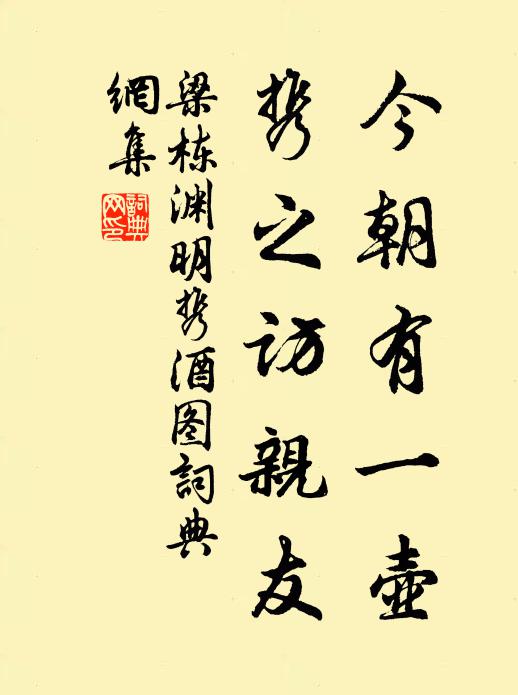 今朝有一壶
携之访親友
梁栋渊明携酒图詞典
網集
詞典网印